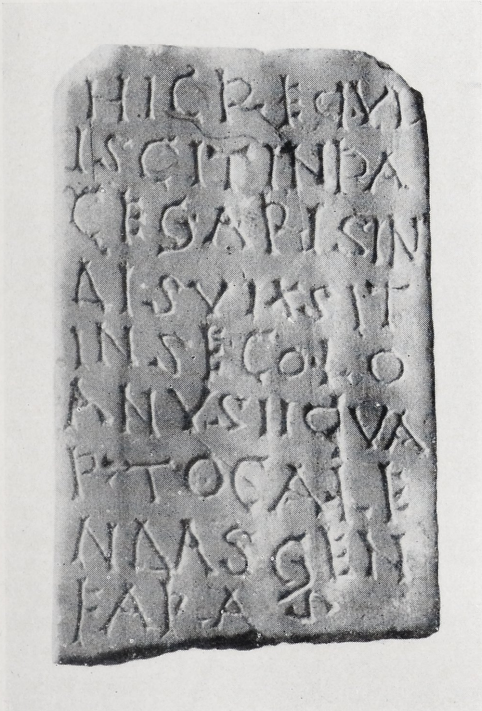 HICREQVI
ISCITINPA
CESAPISIN
AISVIXSIT
INSECOLO
ANVSIIQVA
RTOCALE
NDASGEN
IARAS